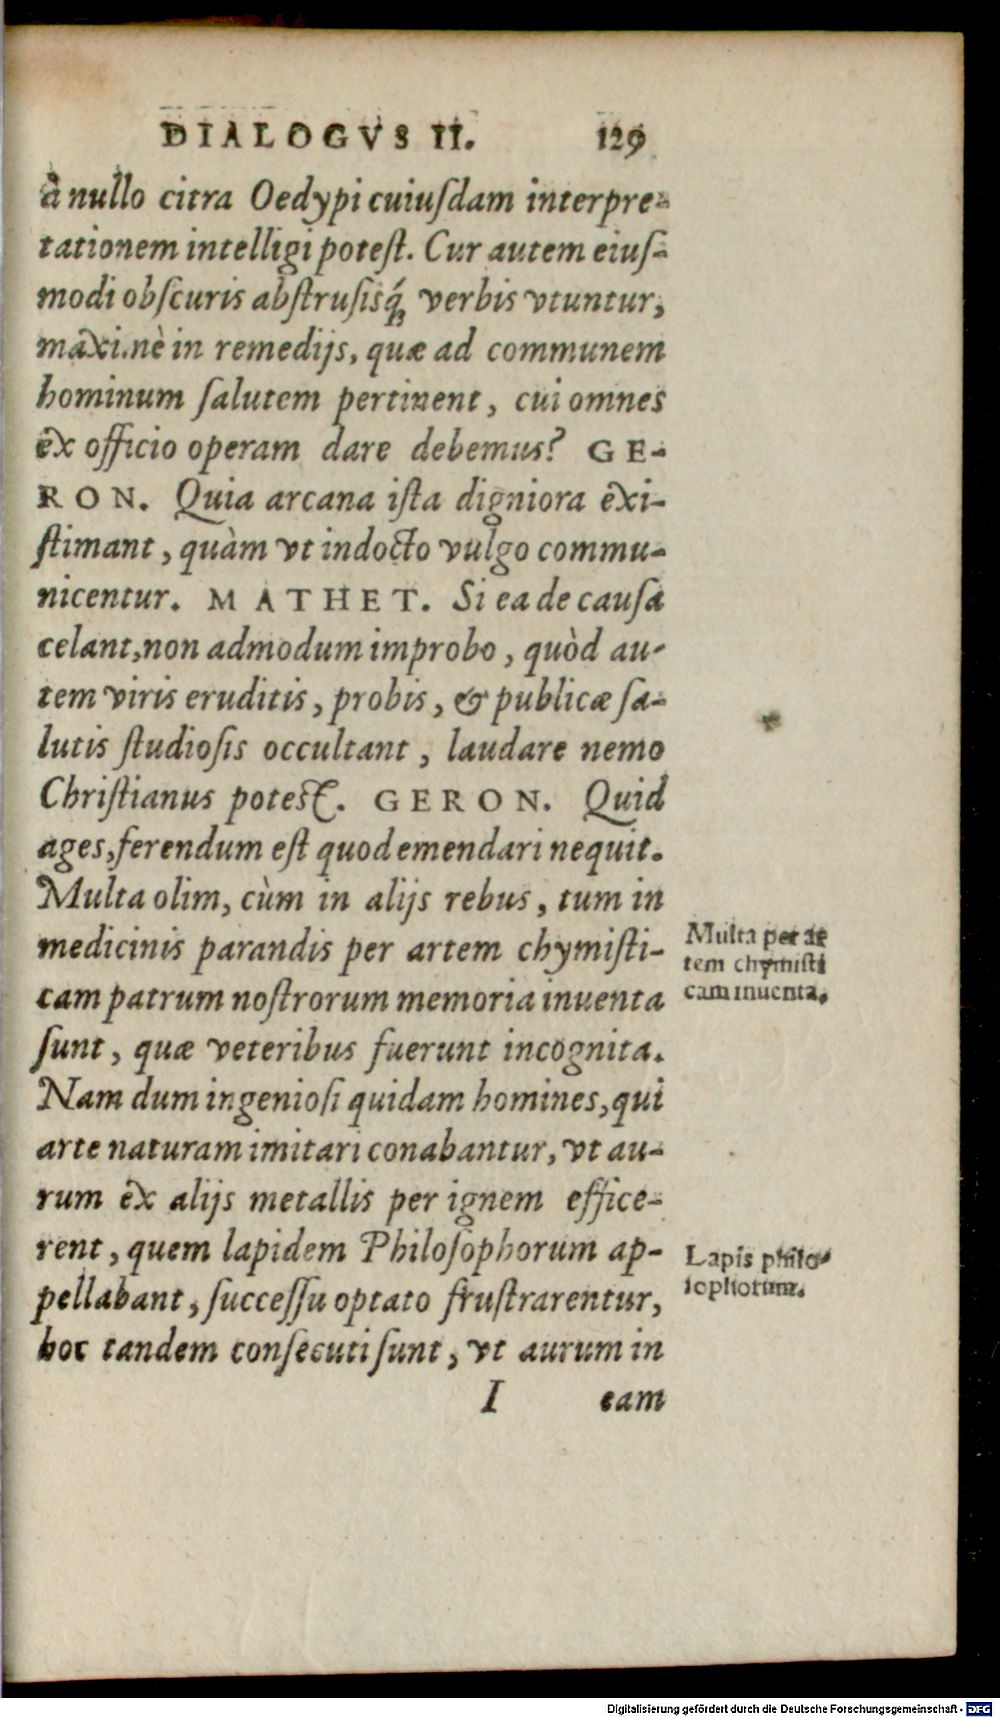 DIALOGVS II. 129
à nullo citra Oedypi cuiuſdam interpre-
tationem intelligi poteſt. Cur autem eiuſ-
modi obſcuris abſtruſisq́; verbis vtuntur,
maximè in remedijs, quæ ad communem
hominum ſalutem pertinent, cui omnes
ex officio operam dare debemus? GE-
RON. Quia arcana iſta digniora exi-
ſtimant, quàm vt indocto vulgo commu-
nicentur. MATHET. Si ea de cauſa
celant, non admodum improbo, quòd au-
tem viris eruditis, probis, & publicæ ſa-
lutis ſtudioſis occultant, laudare nemo
Chriſtianus poteſt. GERON. Quid
ages, ferendum eſt quod emendari nequit.
Multa olim, cùm in alijs rebus, tum in
medicinis parandis per artem chymiſti-
cam patrum noſtrorum memoria inuenta
ſunt, quæ veteribus fuerunt incognita.
Nam dum ingenioſi quidam homines, qui
arte naturam imitari conabantur, vt au-
rum ex alijs metallis per ignem effice-
rent, quem lapidem Philoſophorum ap-
pellabant, ſucceſſu optato fruſtrarentur,
hoc tandem conſecuti ſunt, vt aurum in
I eam
Multa per ar
tem chymiſti
cam inuenta.
Lapis philo-
ſophorum.
Digitalisierung gefördert durch die Deutsche Forschungsgemeinschaft - DFG